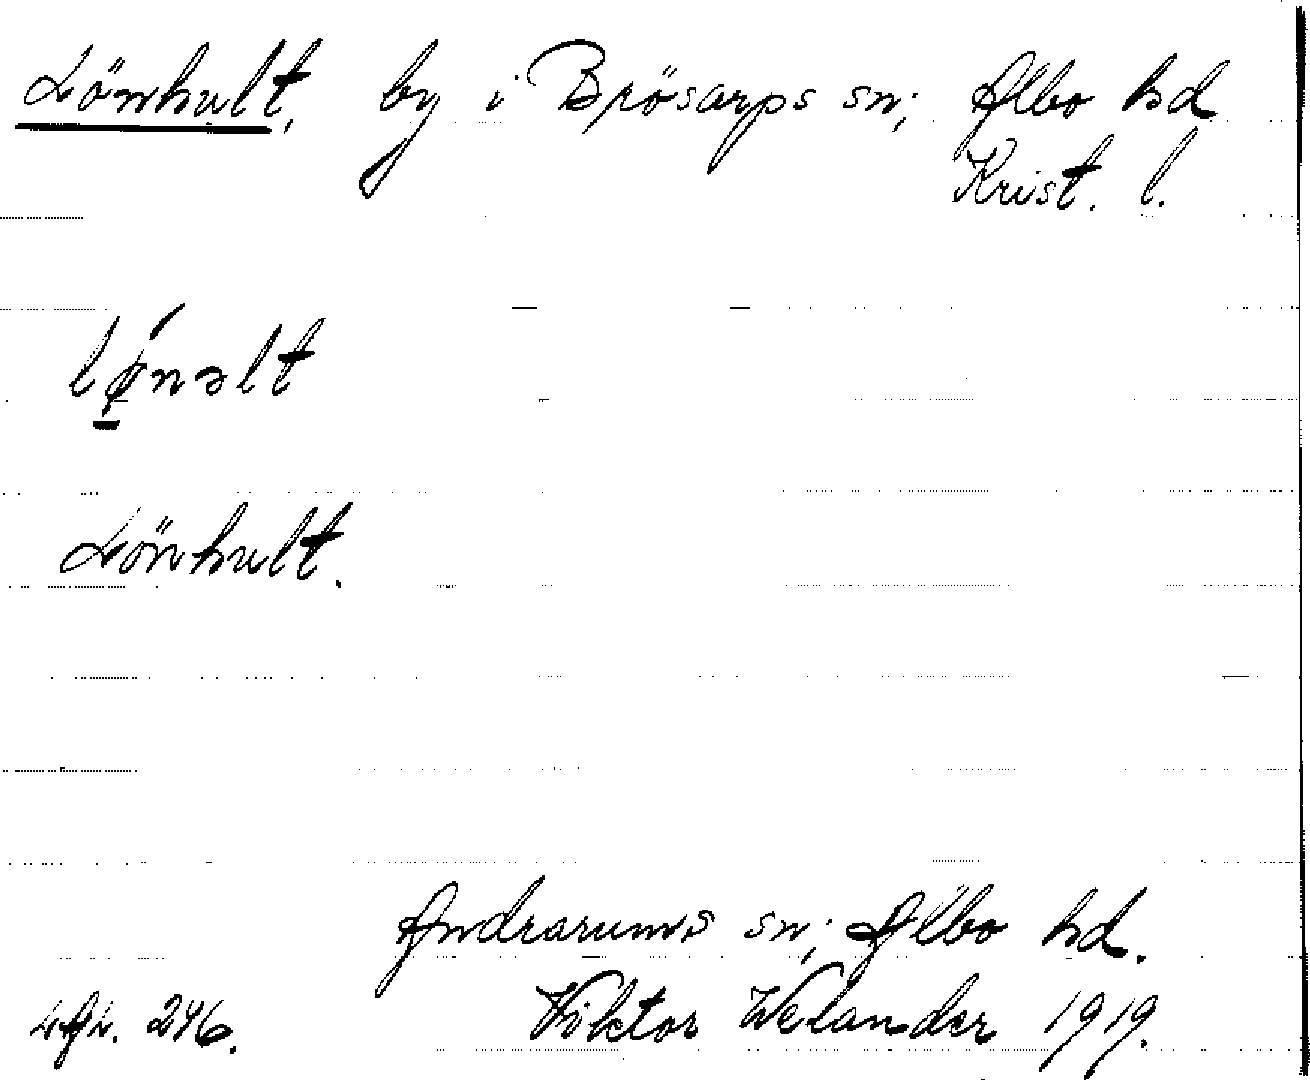 Lönhult, by i Brösarps sn; Albo hd
Krist. l.
lǿ̱nəlt
Lönhult.
Andrarums sn; Albo hd.
LAL. 246. Viktor Welander 1919.